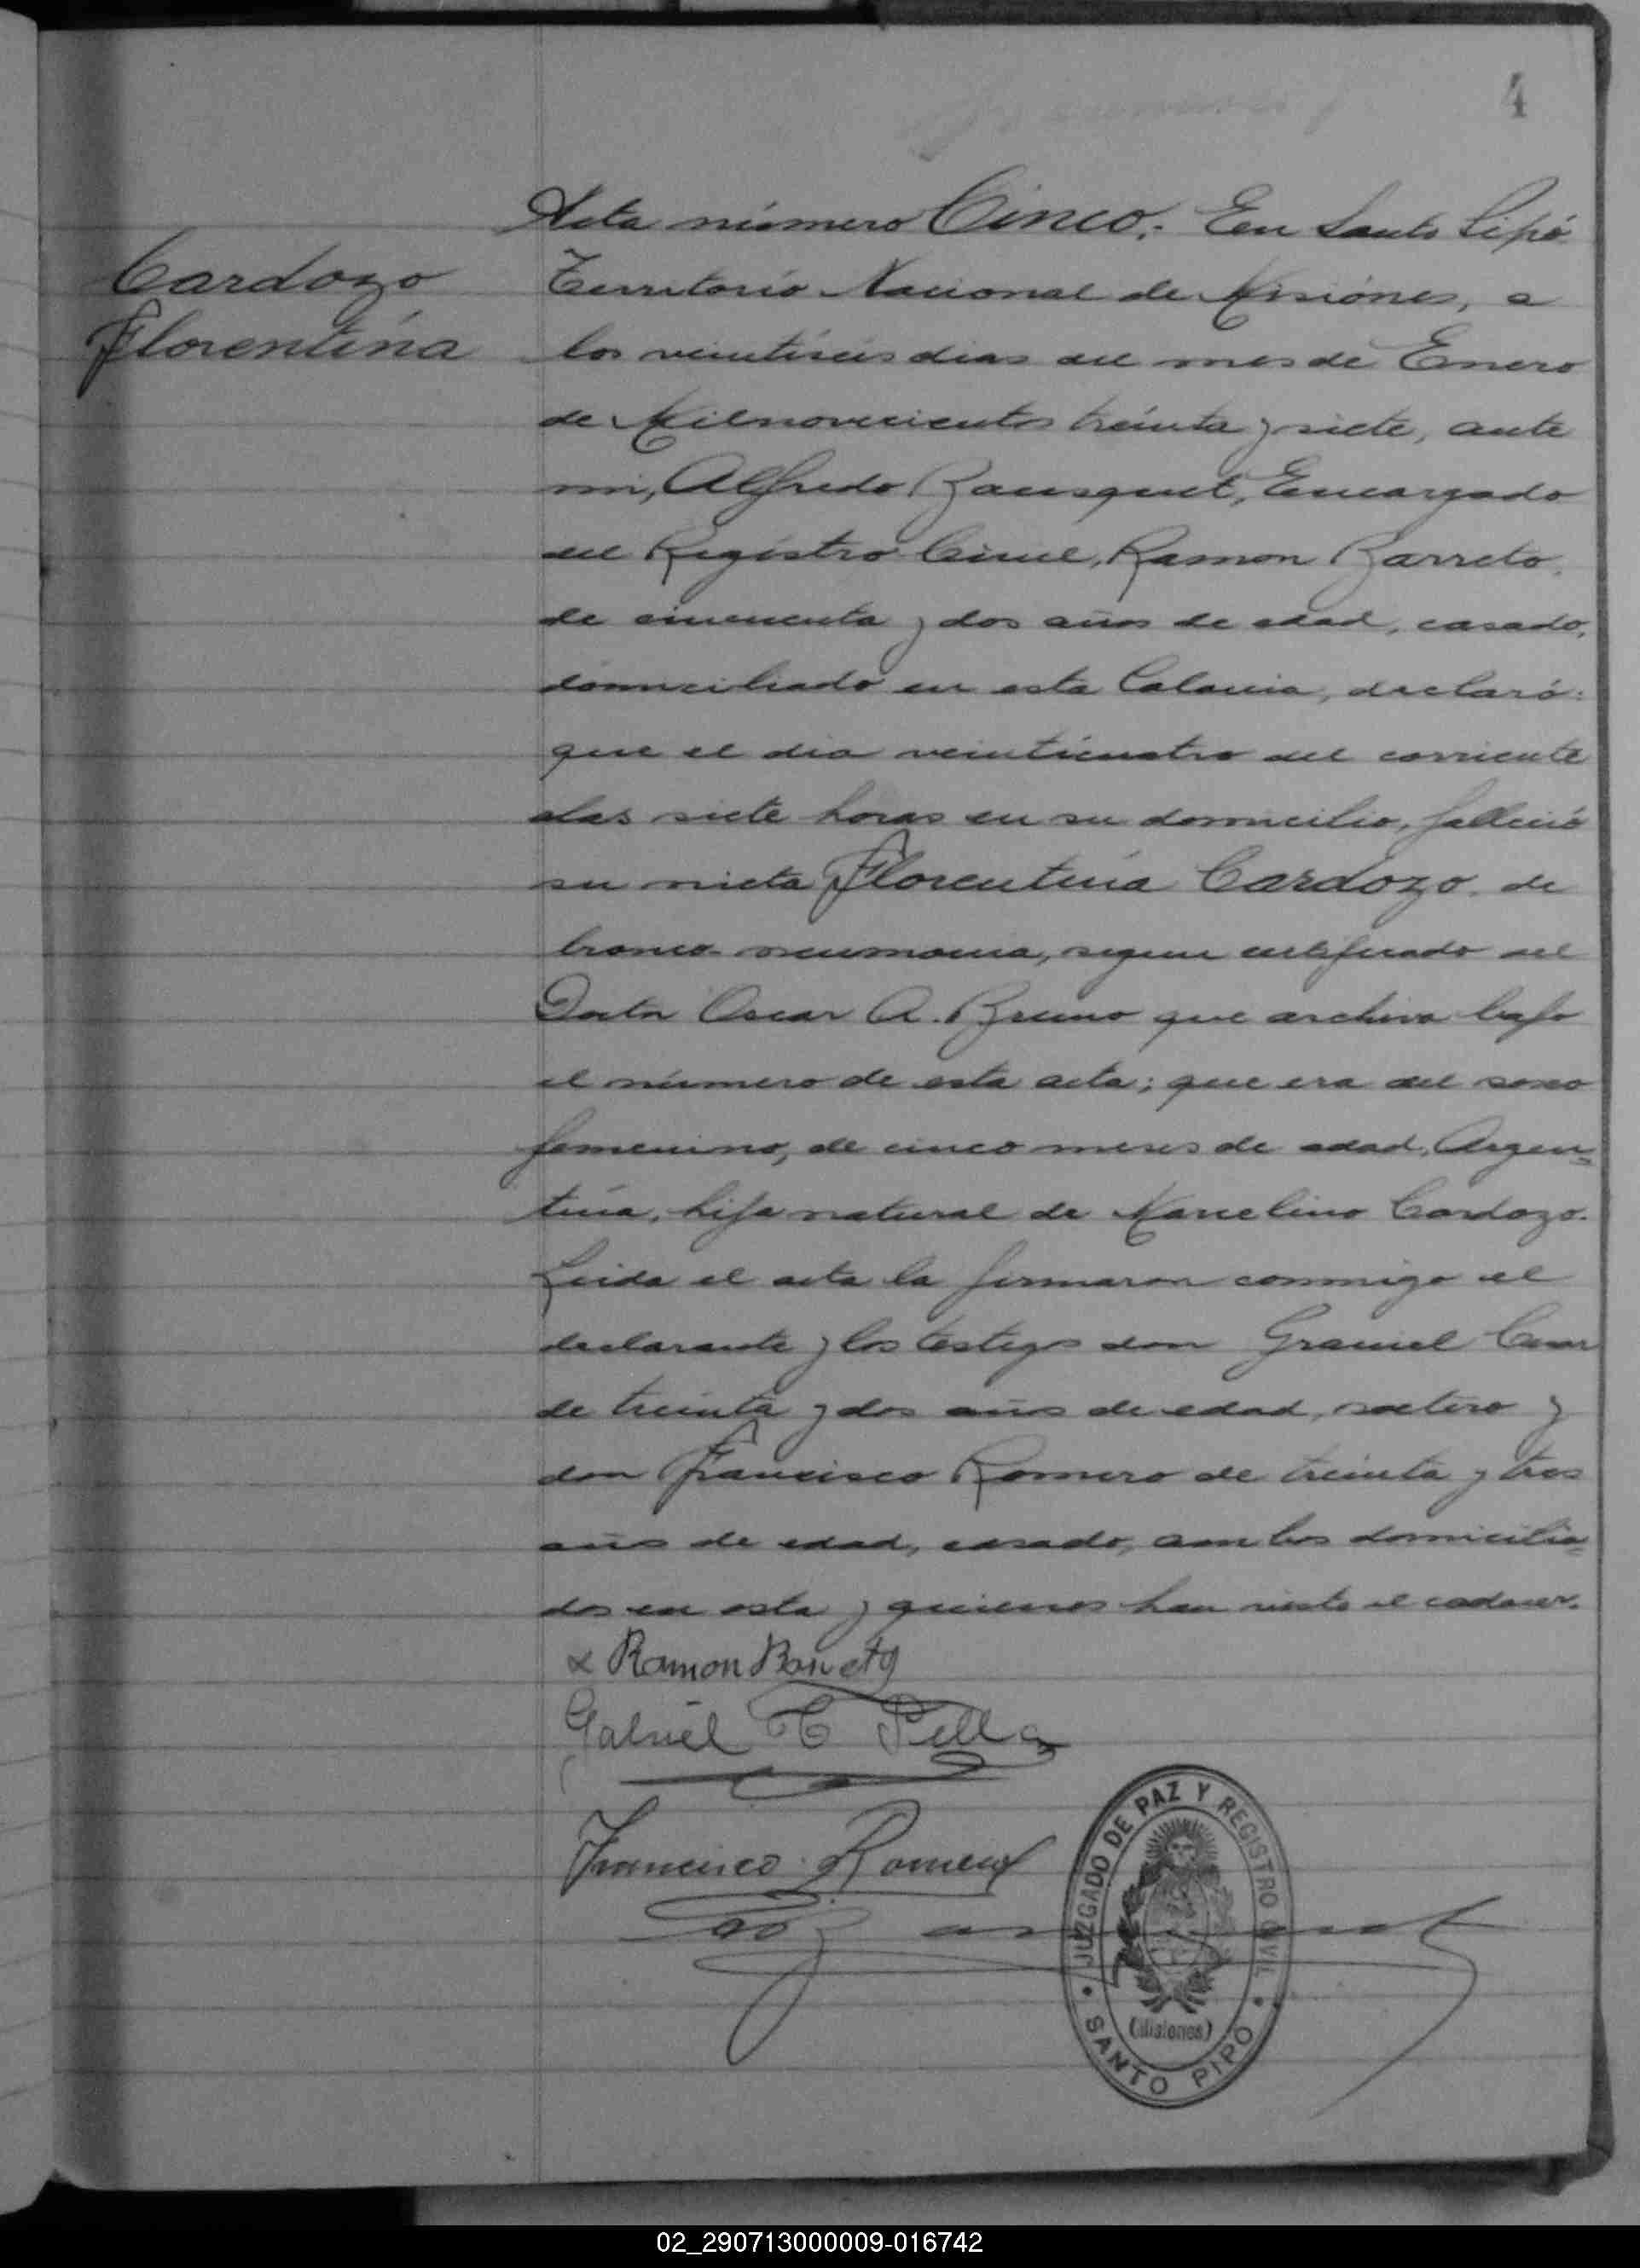 4
Acta número Cinco. En Santo Pipó
Cardozo
Florentina
Territorio Nacional de Misiones, a
los veintiseis dias del mes de Enero
de Milnovecientos treinta y siete, ante
mi, Alfredo Bousquet, Encargado
del Registro Civil, Ramon Barreto,
de cincuenta y dos años de edad, casado,
domiciliado en esta Colonia, declaró:
que el dia veinticuatro del corriente
alas siete horas en su domicilio, falleció
su nieta Florentina Cardozo, de
bronco-neumonia, segun certificado del
Doctor Oscar A. Bruno que archivo bajo
el número de esta acta; que era del sexo
femenino, de cinco meses de edad, Argen-
tina, hija natural de Marcelino Cardozo.
Leida el acta la firmaron conmigo el
declarante y los testigos don
de treinta y dos años de edad, soltero y
don Francisco Romero de treinta y tres
años de edad, casado, ambos domicilia-
dos en esta y quienes han visto el cadaver.
x Ramon Barreto
Gabriel
Francisco Romero
JUZGADO DE PAZ Y REGISTRO CIVIL
(Misiones)
SANTO PIPÓ
02_290713000009-016742